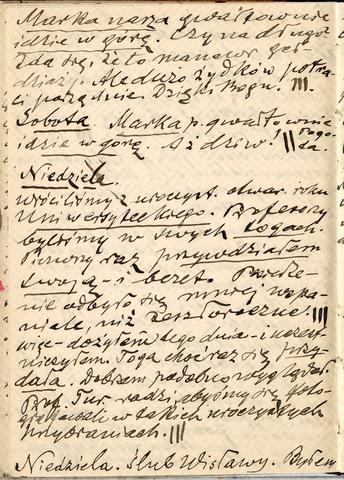 Marka nasza gwałtownie
idzie w górę. Czy na długo?
Zda się, że to manewr gieł-
dziaży. Ale dużo Żydków potra-
ci porządnie. Dzięki Bogu. |||.
Sobota Marka p. gwałtownie
idzie w górę. Aż dziw! || Pogo-
da.
Niedziela.
Wróciliśmy z uroczyst. otwar. roku
Uniwersyteckiego. Profesorzy
byliśmy w swych togach.
Pierwszy raz przywdziałem
swoją - i beret.
nie odbyło się mniej wspa-
niale, niż zeszłoroczne. |||
więc dożyłem tego dnia - i uczest-
niczyłem. Toga choć raz się przy-
dała. Dobrze podobno wyglądał.
Prof. Tur radzi, abyśmy się foto-
grafowali w takich uroczystych
przybraniach. |||
Niedziela. Ślub Wisławy. Byłem